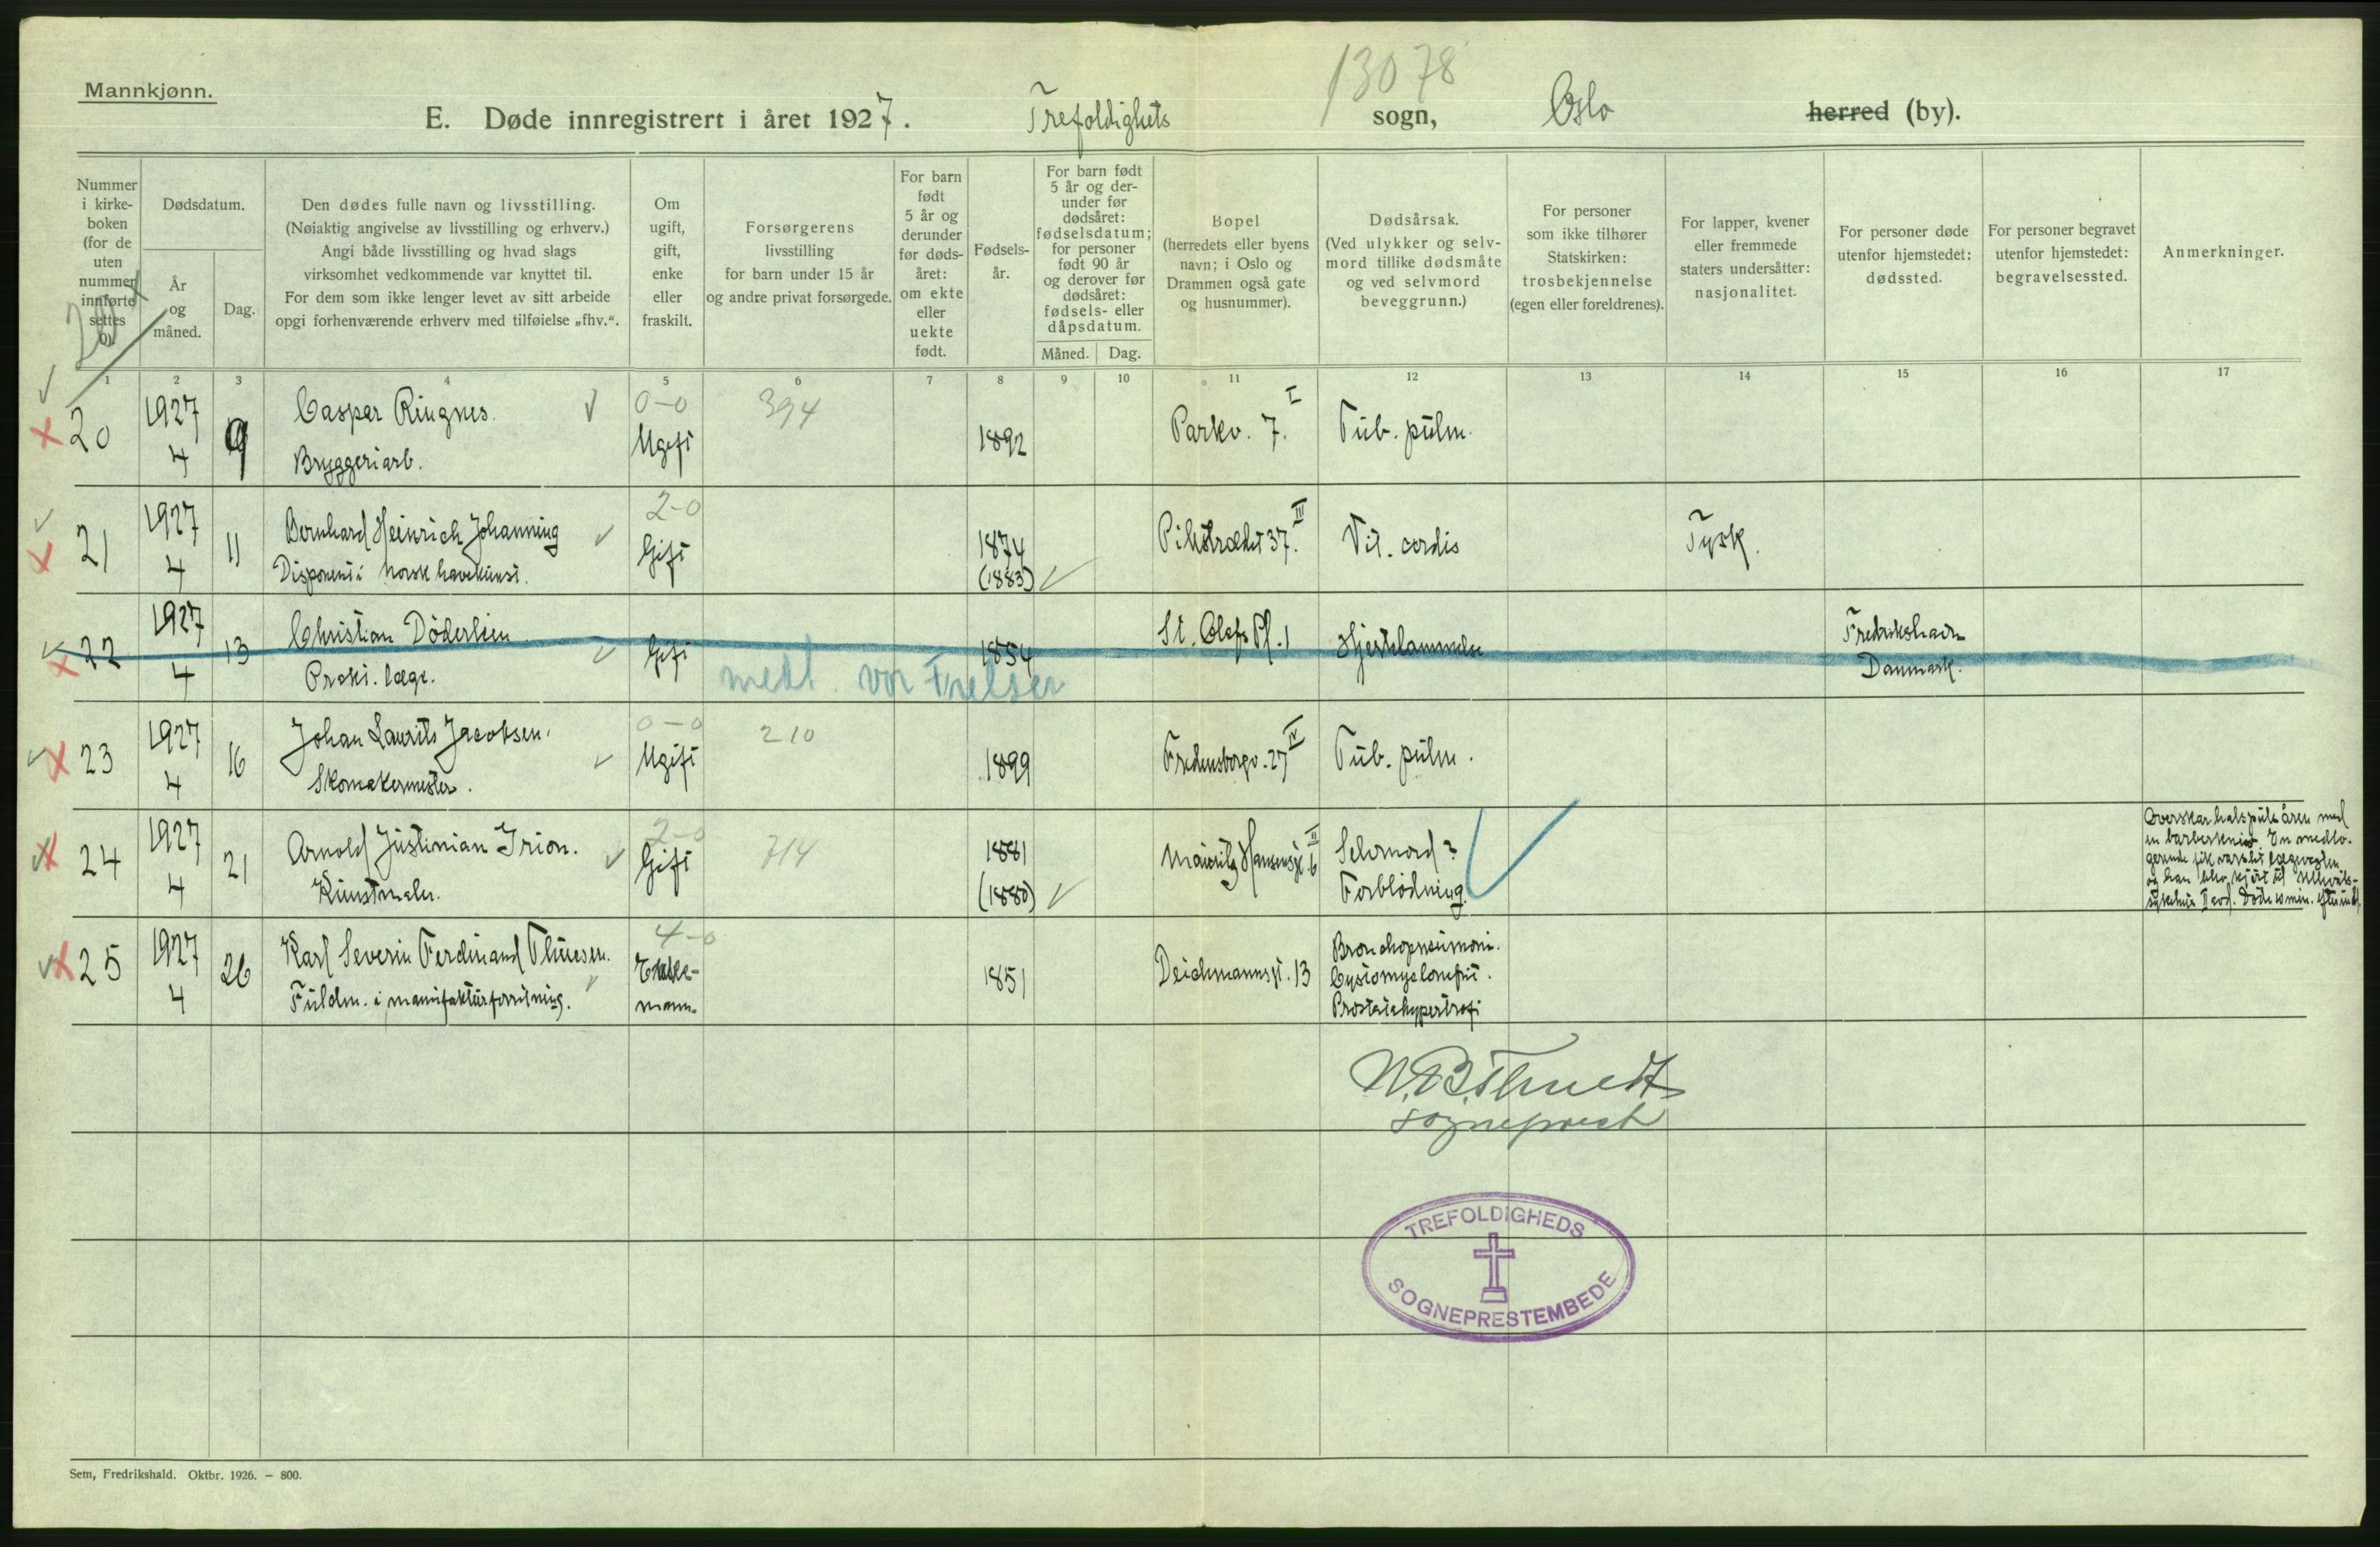 13078
Mannkjønn.
E. Døde innregistrert i året 1927. Trefoldighets sogn, Oslo herred (by).
Nummer
i kirke-
boken
(for de
uten
nummer
innførte
settes
0).
Dødsdatum.
År
og
måned.
Dag.
Den dødes fulle navn og livsstilling.
(Nøiaktig angivelse av livsstilling og erhverv.)
Angi både livsstilling og hvad slags
virksomhet vedkommende var knyttet til.
For dem som ikke lenger levet av sitt arbeide
opgi forhenværende erhverv med tilføielse „fhv.“.
Om
ugift,
gift,
enke
eller
fraskilt.
Forsørgerens
livsstilling
for barn under 15 år
og andre privat forsørgede.
For barn
født
5 år og
derunder
før døds-
året:
om ekte
eller
uekte
født.
Fødsels-
år.
For barn født
5 år og der-
under før
dødsåret:
fødselsdatum;
for personer
født 90 år
og derover før
dødsåret:
fødsels- eller
dåpsdatum.
Måned. Dag.
Bopel
(herredets eller byens
navn; i Oslo og
Drammen også gate
og husnummer).
Dødsårsak.
(Ved ulykker og selv-
mord tillike dødsmåte
og ved selvmord
beveggrunn.)
For personer
som ikke tilhører
Statskirken:
trosbekjennelse
(egen eller foreldrenes).
For lapper, kvener
eller fremmede
staters undersåtter:
nasjonalitet.
For personer døde
utenfor hjemstedet:
dødssted.
For personer begravet
utenfor hjemstedet:
begravelsessted.
Anmerkninger.
1 2 3 4 5 6 7 8 9 10 11 12 13 14 15 16 17
20 1927 4 9 Caspar Ringnes. 0-0 394 1892 Parkv. 7. I Tub. pulm.
Bryggeriarb. Ugift
21 1927 4 11 Bernhard Heinrich Johanning 2-0 1874 Pilestrædet 37. III Vit. cordis Tysk.
Disponent i Norsk havekunst. Gift (1883)
22 1927 4 13 Christian Döderlein Gift 1854 St. Olafs Pl. 1 Hjertelammelse Fredrikshavn
Prakt. læge. medl. vor Frelser Danmark.
23 1927 4 16 Johan Laurits Jacobsen. 0-0 210 1899 Fredensborgv. 27 IV Tub. pulm.
Skomakermester. Ugift
24 1927 4 21 Arnold Justinian Irion. 2-0 714 1881 Mauritz Hansensgt. 6 II Selvmord?
Kunstmaler. Gift (1880) Forblödning.
Overskar halspulsåren med
en barberkniv. En medlo-
gerende fik varslet lægevagten
og han blev kjört til Ullevåls-
sykehus II avd. Döde 10 min. efter
25 1927 4 26 Karl Severin Ferdinand Thuesen. 4-0 1851 Deichmannsgt. 13 Bronchopneumoni.
Fuldm. i manufakturforretning. Enke-
mann.
Prostatahypertrofi
sogneprest
TREFOLDIGHEDS
SOGNEPRESTEMBEDE
Sem, Fredrikshald. Oktbr. 1926. – 800.